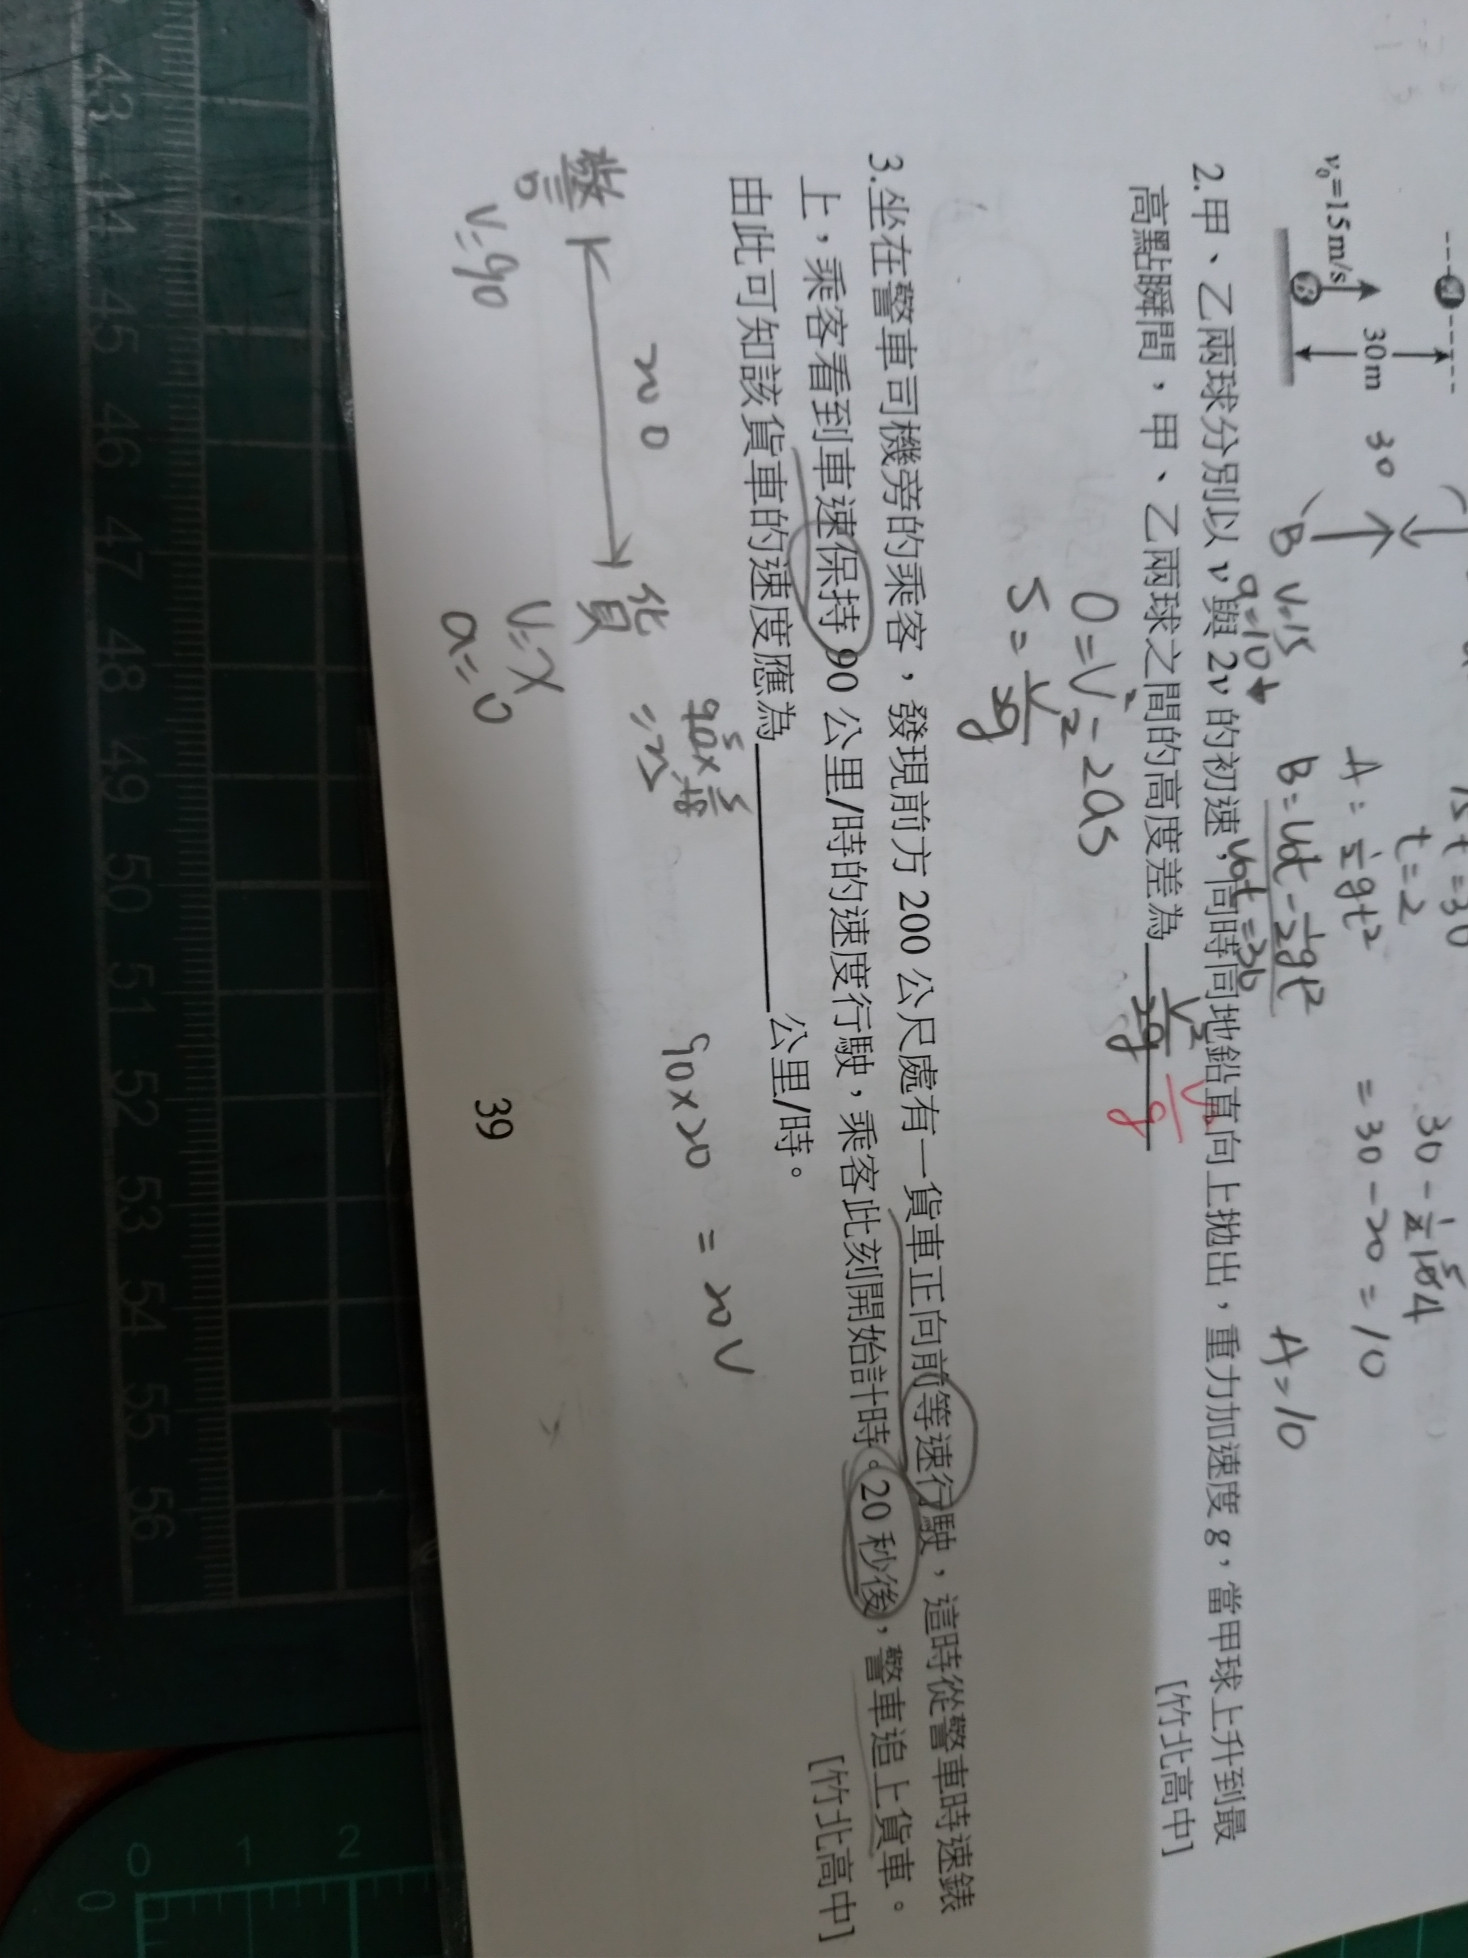 v₀=15 m/s
30m
30
B
v=15
a=10↓
15t=30
t=2
A=½gt²
B=V₀t-½gt²
V₀t=30
30-½10×4
=30-20=10
A=10
2.甲、乙兩球分別以 v 與 2v 的初速，同時同地鉛直向上拋出，重力加速度 g，當甲球上升到最
高點瞬間，甲、乙兩球之間的高度差為
[竹北高中]
0=V²-2as
S=V²/2g
V²/2g
V²/g
3.坐在警車司機旁的乘客，發現前方 200 公尺處有一貨車正向前等速行駛，這時從警車時速錶
上，乘客看到車速保持 90 公里/時的速度行駛，乘客此刻開始計時。20 秒後，警車追上貨車。
由此可知該貨車的速度應為＿＿＿＿公里/時。
[竹北高中]
200
警
貨
V=90
V=x
a=0
90×5/18
=25
90×20 = 20V
39
43 44 45 46 47 48 49 50 51 52 53 54 55 56
0 1 2
0